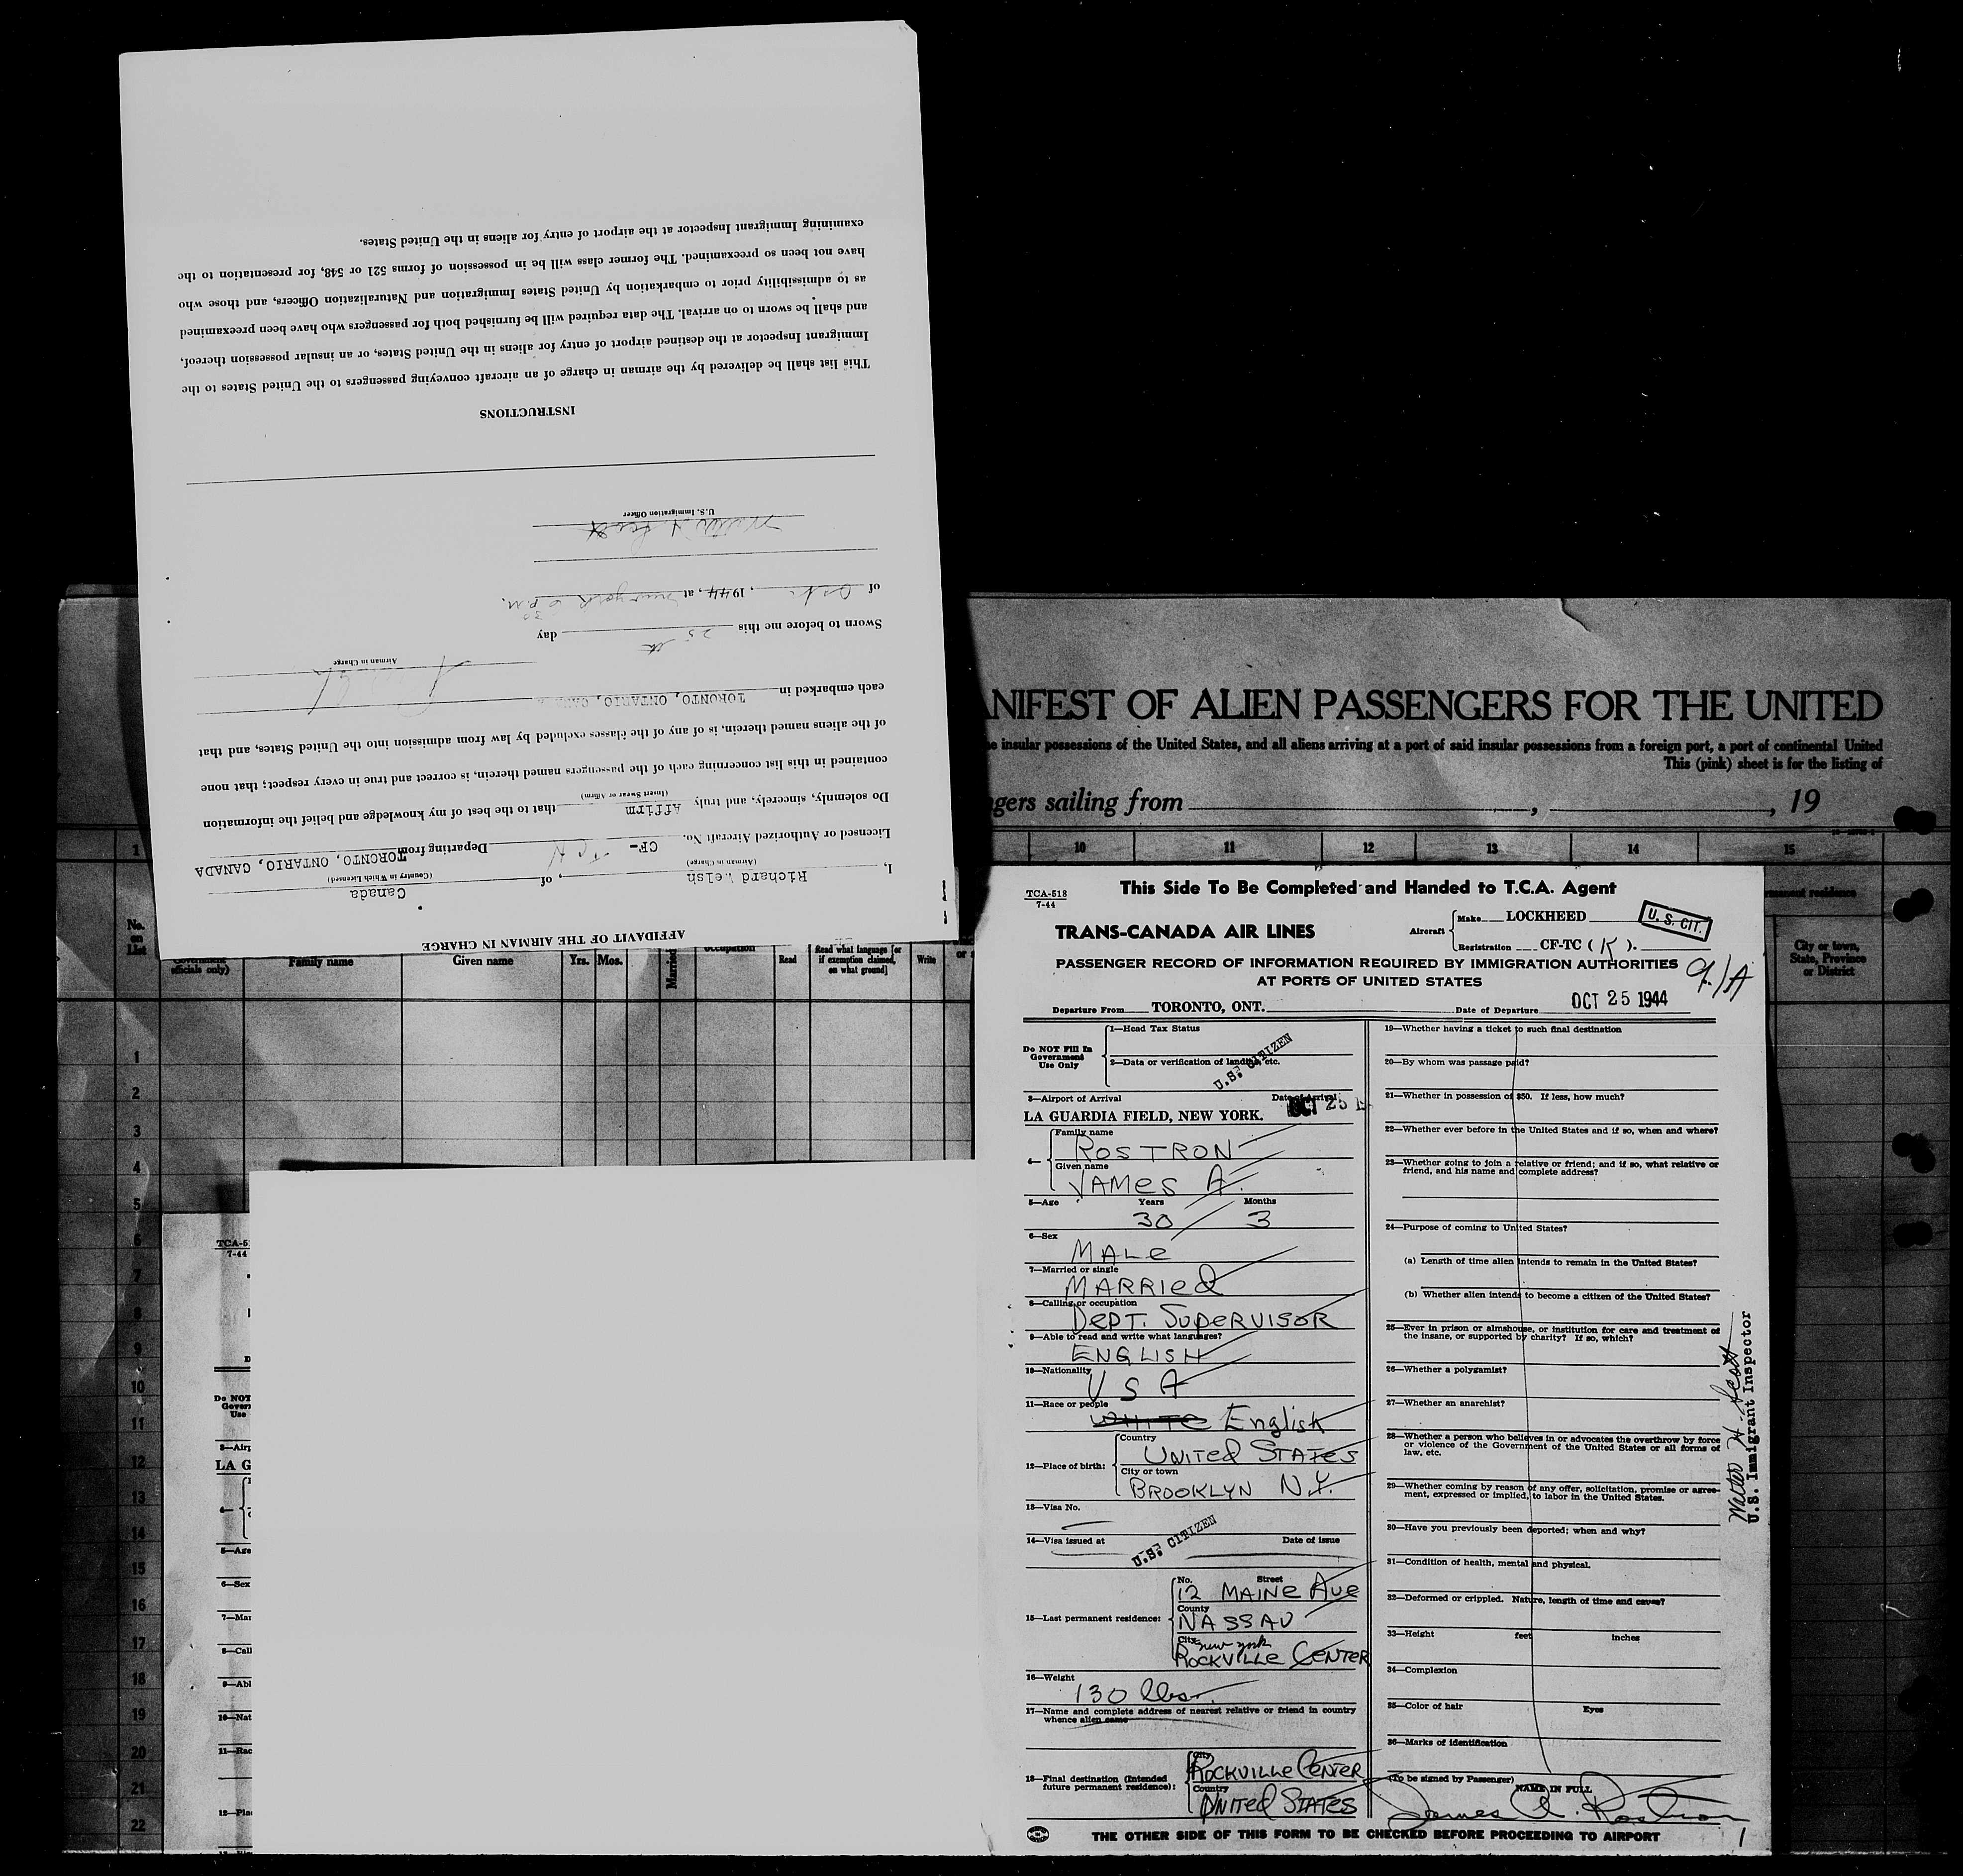 AFFIDAVIT OF THE AIRMAN IN CHARGE
I, Richard Welsh, of Canada
(Airman in Charge) (Country in Which Licensed)
Licensed or Authorized Aircraft No. CF- TCK Departing from TORONTO, ONTARIO, CANADA
Do solemnly, sincerely, and truly Affirm that to the best of my knowledge and belief the information
(Insert Swear or Affirm)
contained in this list concerning each of the passengers named therein, is correct and true in every respect; that none
of the aliens named therein, is of any of the classes excluded by law from admission into the United States, and that
each embarked in TORONTO, ONTARIO, CANADA
Airman in Charge
Sworn to before me this 25th day
of Oct., 1944, at New York 6 30 P.M.
U.S. Immigration Officer
INSTRUCTIONS
This list shall be delivered by the airman in charge of an aircraft conveying passengers to the United States to the
Immigrant Inspector at the destined airport of entry for aliens in the United States, or an insular possession thereof,
and shall be sworn to on arrival. The data required will be furnished both for passengers who have been preexamined
as to admissibility prior to embarkation by United States Immigration and Naturalization Officers, and those who
have not been so preexamined. The former class will be in possession of forms 521 or 548, for presentation to the
examining Immigrant Inspector at the airport of entry for aliens in the United States.
ANIFEST OF ALIEN PASSENGERS FOR THE UNITED
insular possessions of the United States, and all aliens arriving at a port of said insular possessions from a foreign port, a port of continental United
This (pink) sheet is for the listing of
gers sailing from , , 19
1 10 11 12 13 14 15
No. on List
officials only)
Family name Given name Yrs. Mos. Married occupation Read Read what language [or if exemption claimed, on what ground] Write
permanent residence
City or town, State, Province or District
1
2
3
4
5
6
7
8
9
10
11
12
13
14
15
16
17
18
19
20
21
22
TCA-5
7-44
Do NOT
Govern
Use
3—Airp
LA G
4—
5—Age
6—Sex
7—Mar
8—Call
9—Abl
10—Nat
11—Rac
12—Plac
TCA-518
7-44
This Side To Be Completed and Handed to T.C.A. Agent
TRANS-CANADA AIR LINES
Aircraft Make LOCKHEED
Registration CF-TC (K).
U.S. CIT.
PASSENGER RECORD OF INFORMATION REQUIRED BY IMMIGRATION AUTHORITIES
AT PORTS OF UNITED STATES
Departure From TORONTO, ONT. Date of Departure OCT 25 1944
Do NOT Fill In Government Use Only
1—Head Tax Status
2—Data or verification of landing, etc.
U.S. CITIZEN
3—Airport of Arrival Date of Arrival
LA GUARDIA FIELD, NEW YORK. OCT 25
4— Family name
ROSTRON
Given name
JAMES A.
5—Age Years Months
30 3
6—Sex
MALE
7—Married or single
MARRIED
8—Calling or occupation
DEPT. SUPERVISOR
9—Able to read and write what languages?
ENGLISH
10—Nationality
USA
11—Race or people
WHITE English
12—Place of birth: Country
UNITED STATES
City or town
BROOKLYN N.Y.
13—Visa No.
14—Visa issued at Date of issue
U.S. CITIZEN
15—Last permanent residence: No. Street
12 MAINE AVE
County
NASSAU
City
new york
ROCKVILLE CENTER
16—Weight
130 lbs.
17—Name and complete address of nearest relative or friend in country
whence alien came
18—Final destination (Intended future permanent residence): City
ROCKVILLE CENTER
Country
UNITED STATES
19—Whether having a ticket to such final destination
20—By whom was passage paid?
21—Whether in possession of $50. If less, how much?
22—Whether ever before in the United States and if so, when and where?
23—Whether going to join a relative or friend; and if so, what relative or
friend, and his name and complete address?
24—Purpose of coming to United States?
(a) Length of time alien intends to remain in the United States?
(b) Whether alien intends to become a citizen of the United States?
25—Ever in prison or almshouse, or institution for care and treatment of
the insane, or supported by charity? If so, which?
26—Whether a polygamist?
27—Whether an anarchist?
28—Whether a person who believes in or advocates the overthrow by force
or violence of the Government of the United States or all forms of
law, etc.
29—Whether coming by reason of any offer, solicitation, promise or agree-
ment, expressed or implied, to labor in the United States.
30—Have you previously been deported; when and why?
31—Condition of health, mental and physical.
32—Deformed or crippled. Nature, length of time and cause?
33—Height feet inches
34—Complexion
35—Color of hair Eyes
36—Marks of identification
(To be signed by Passenger) NAME IN FULL
James A. Rostron
U.S. Immigrant Inspector
THE OTHER SIDE OF THIS FORM TO BE CHECKED BEFORE PROCEEDING TO AIRPORT
1